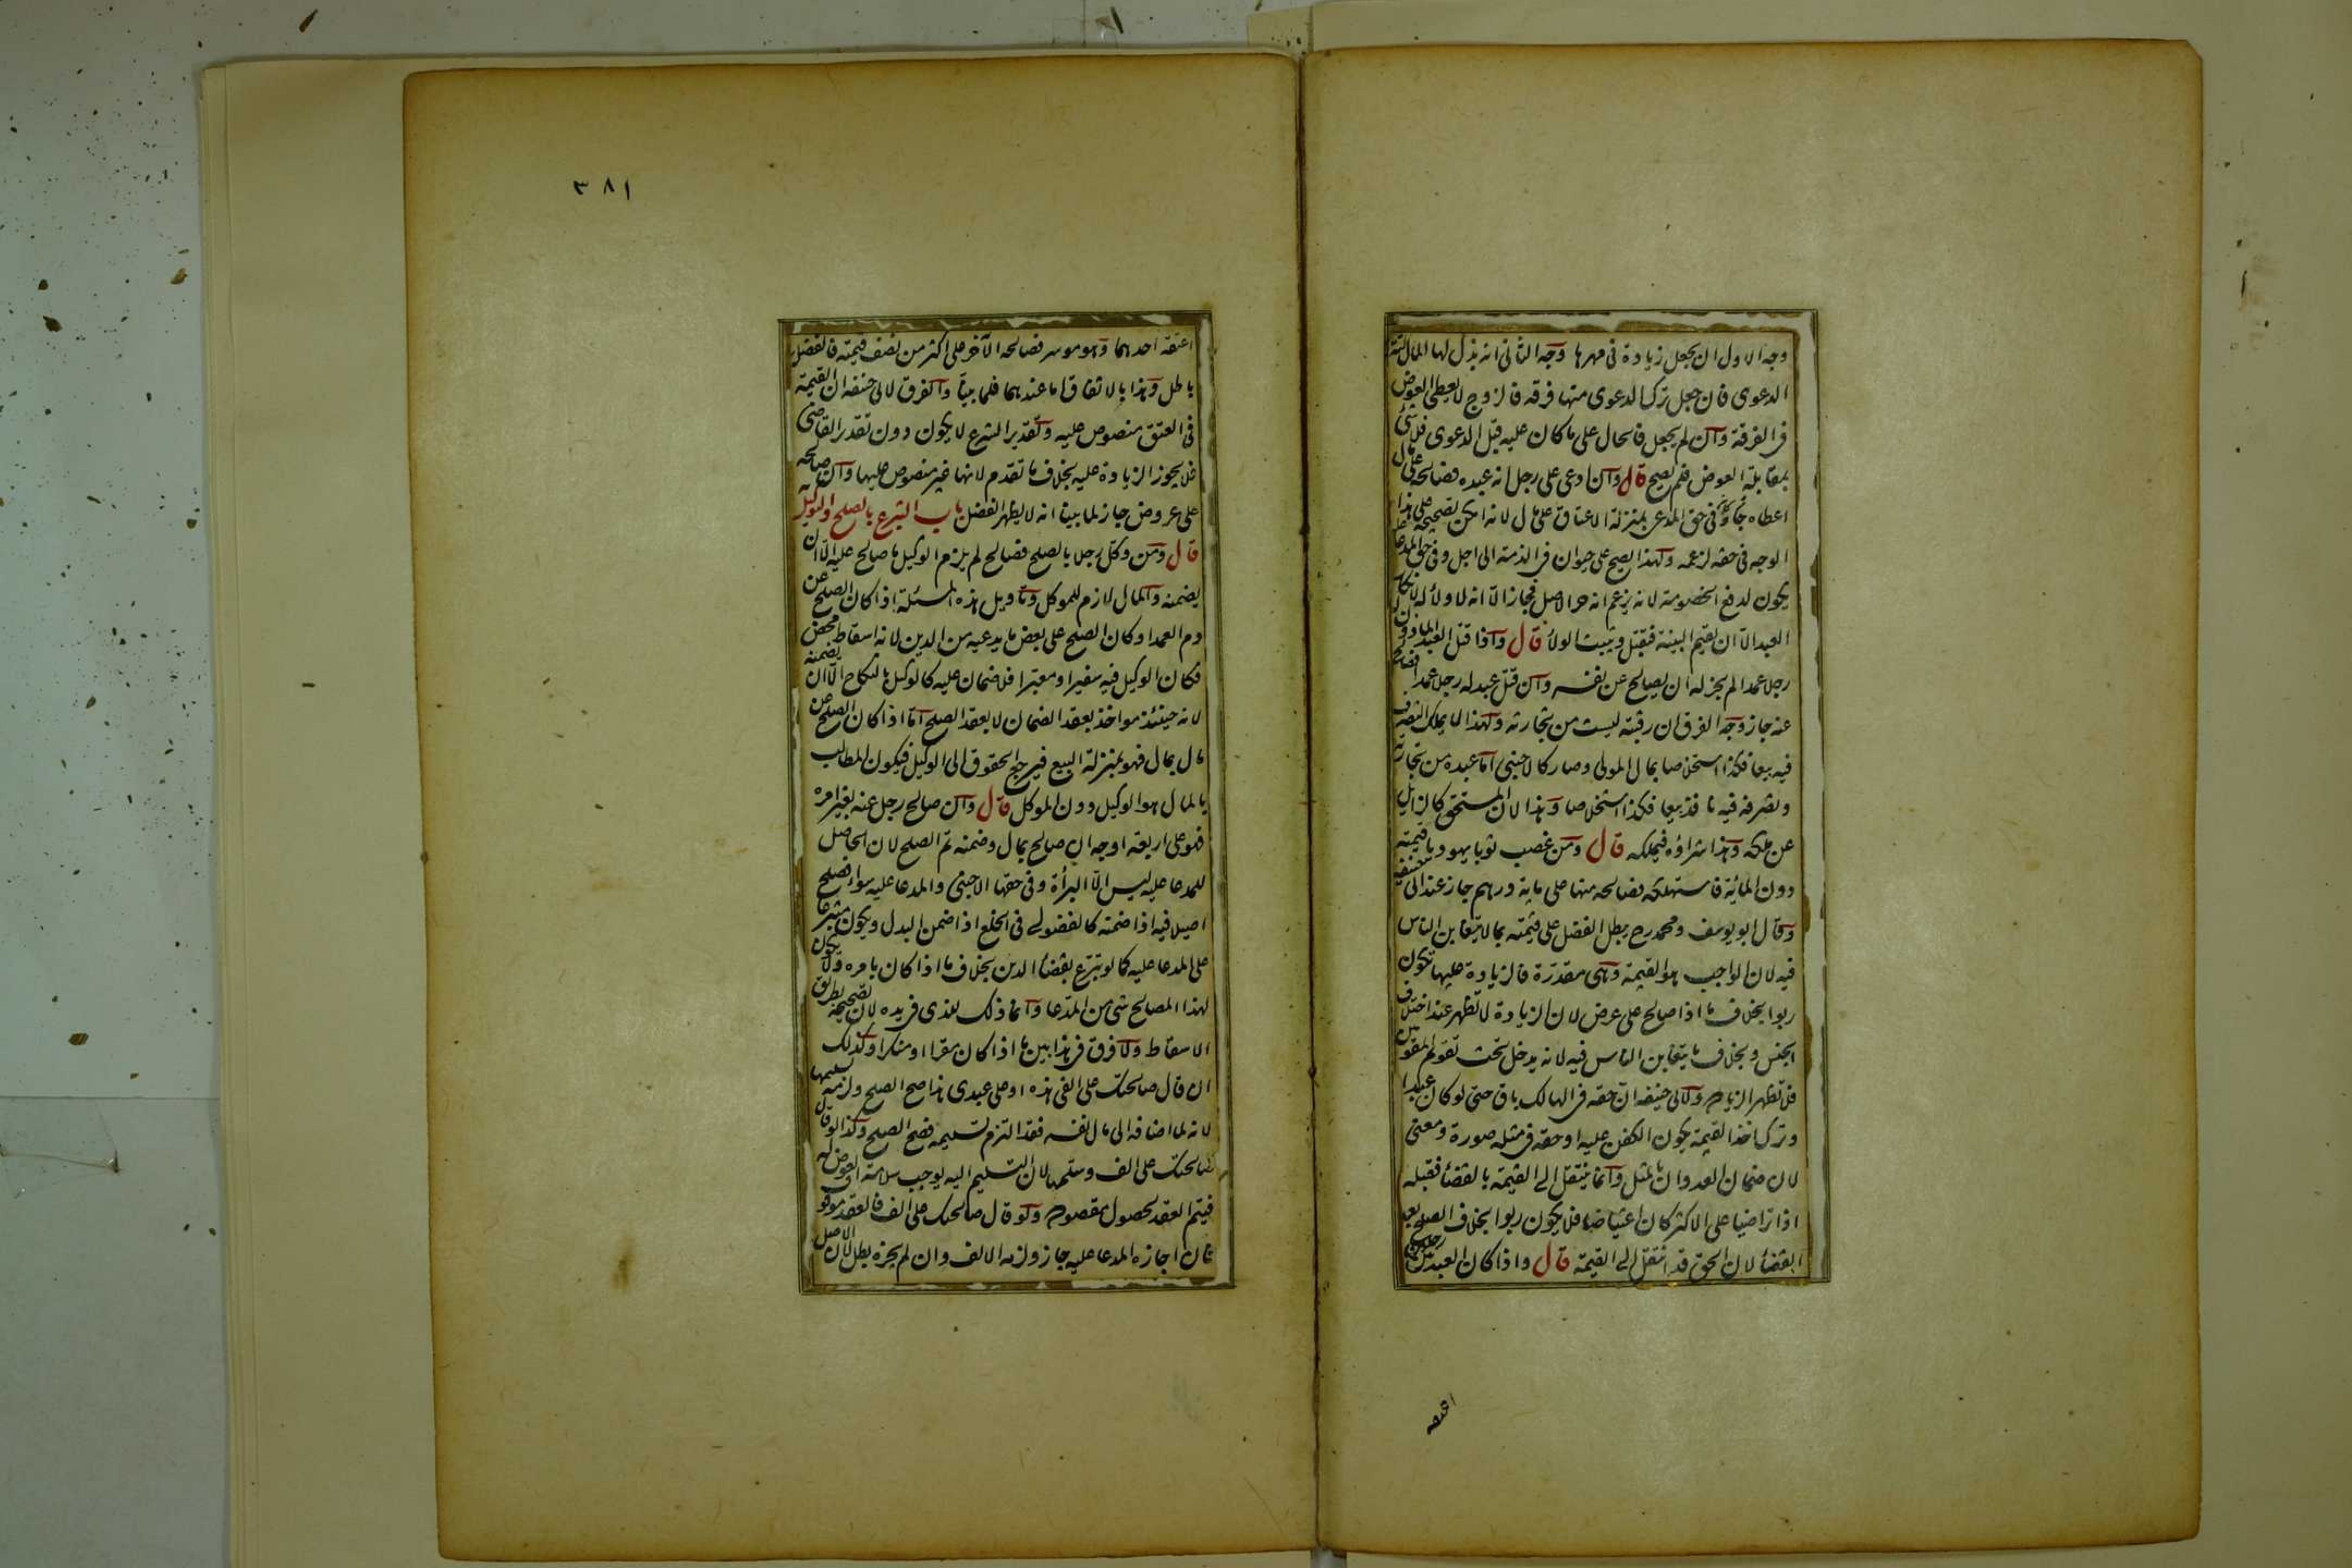 وجه الاول ان يجعل زيادة فى مهرها وجه الثانى انه بذل لها المال لتترك
الدعوى فان جعل ترك الدعوى منها فرقه فالزوج لا يعطى العوض
فى الفرقة وان لم يجعل فالحال على ما كان عليه قبل الدعوى فلا شئ
بمقابلة العوض فلم يصح قال وان ادعى على رجل انه عبده فصالحه على مال
اعطاه جاز وكان فى حق المدعى بمنزلة الاعتاق على مال لانه امكن تصحيحه على هذا
الوجه فى حقه لزعمه ولهذا يصح على حيوان فى الذمة الى اجل وفى حق المدعا عليه
يكون لدفع الخصومة لانه يزعم انه حر الاصل فجاز الا انه لا ولاء له لانكار
العبد الا ان يقيم البينة فتقبل ويثبت الولاء قال واذا قتل العبد الماذون له
رجلا عمدا لم يجز له ان يصالح عن نفسه وان قتل عبد له رجلا عمدا فصالح
عنه جاز وجه الفرق ان رقبته ليست من تجارته ولهذا لا يملك التصرف
فيه بيعا فكذا استخلاصا بمال المولى وصار كالاجنبى اما عبده من تجارته
وتصرفه فيه نافذ بيعا فكذا استخلاصا وهذا لان المستحق كالزايل
عن ملكه وهذا شراؤه فيملكه قال ومن غصب ثوبا يهوديا قيمته
دون المائة فاستهلكه فصالحه منها على مائة درهم جاز عند ابى حنيفه
وقال ابو يوسف ومحمد رح يبطل الفضل على قيمته بما لا يتغابن الناس
فيه لان الواجب هو القيمة وهى مقدرة فالزيادة عليها تكون
ربوا بخلاف ما اذا صالح على عرض لان الزيادة لا تظهر عند اختلاف
الجنس وبخلاف ما يتغابن الناس فيه لانه يدخل تحت تقويم المقومين
فلا تظهر الزيادة ولابى حنيفه ان حقه فى الهالك باق حتى لو كان عبدا
وترك اخذ القيمة يكون الكفن عليه او حقه فى مثله صورة ومعنى
لان ضمان العدوان بالمثل وانما ينتقل الى القيمة بالقضاء فقبله
اذا تراضيا على الاكثر كان اعتياضا فلا يكون ربوا بخلاف الصلح بعد
القضاء لان الحق قد انتقل الى القيمة قال واذا كان العبد بين رجلين
اعتقه
٣٨١
اعتقه احدهما وهو موسر فصالحه الآخر على اكثر من نصف قيمته فالفضل
باطل وهذا بالاتفاق اما عندهما فلما بينا والفرق لابى حنيفه ان القيمة
فى العتق منصوص عليه وتقدير الشرع لا يكون دون تقدير القاضى
فلا يجوز الزيادة عليه بخلاف ما تقدم لانها غير منصوص عليها وان صالحه
على عروض جاز لما بينا انه لا يظهر الفضل باب التبرع بالصلح والتوكيل به
قال ومن وكل رجلا بالصلح فصالح لم يلزم الوكيل ما صالح عليه الا ان
يضمنه والمال لازم للموكل وتاويل هذه المسئلة اذا كان الصلح عن
دم العمد او كان الصلح على بعض ما يدعيه من الدين لانه اسقاط محض
فكان الوكيل فيه سفيرا ومعبرا فلا ضمان عليه كالوكيل بالنكاح الا ان يضمنه
لانه حينئذ مواخذ بعقد الضمان لا بعقد الصلح اما اذا كان الصلح عن
مال بمال فهو بمنزلة البيع فيرجع الحقوق الى الوكيل فيكون المطالب
بالمال هو الوكيل دون الموكل قال وان صالح رجل عنه بغير امره
فهو على اربعة اوجه ان صالح بمال وضمنه تم الصلح لان الحاصل
للمدعا عليه ليس الا البرأة وفى حقها الاجنبى والمدعا عليه سواء فصلح
اصيلا فيه اذا ضمنه كالفضولى فى الخلع اذا ضمن البدل ويكون متبرعا
على المدعا عليه كما لو تبرع بقضاء الدين بخلاف ما اذا كان بامره ولا يكون
لهذا المصالح شئ من المدعا وانما ذلك للذى فى يده لان تصحيحه بطريق
الاسقاط ولا فرق فى هذا بين ما اذا كان مقرا او منكرا وكذلك
ان قال صالحتك على الفى هذه او على عبدى هذا صح الصلح ولزمه تسليمها
لانه لما اضافه الى مال نفسه فقد التزم تسليمه فصح الصلح وكذا لو قال
صالحتك على الف وسلمها لان التسليم اليه يوجب سلامة العوض له
فيتم العقد لحصول مقصوده ولو قال صالحتك على الف فالعقد موقوف
فان اجازه المدعا عليه جاز ولزمه الالف وان لم يجزه بطل لان الاصل